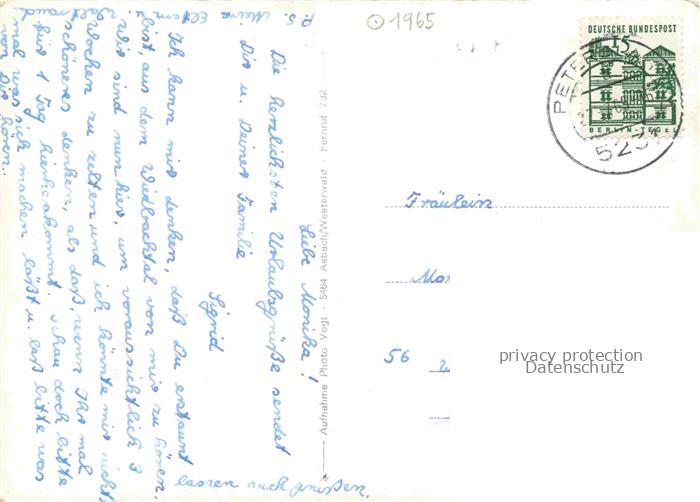 Liebe Monika!
Die herzlichsten Urlaubsgrüße sendet
Dir u. Deiner Familie
Sigrid
Ich kann mir denken, daß Du erstaunt
bist, aus dem Wiedbachtal von mir zu hören.
Wir sind nun hier, um voraussichtlich 3
Wochen zu zelten und ich könnte mir nicht
schöneres denken, als daß, wenn Ihr mal
für 1 Tag hierherkommt. Schau doch bitte
mal was sich machen läßt u. laß bitte was
von Dir hören.
P.S. Meine Eltern u.
Waltraud
lassen auch grüßen.
Aufnahme Photo Vogt · 5464 Asbach/Westerwald · Fernruf 732
1965
DEUTSCHE BUNDESPOST
15
BERLIN-TEGEL
PETER
523
Fräulein
Mo
56
privacy protection
Datenschutz